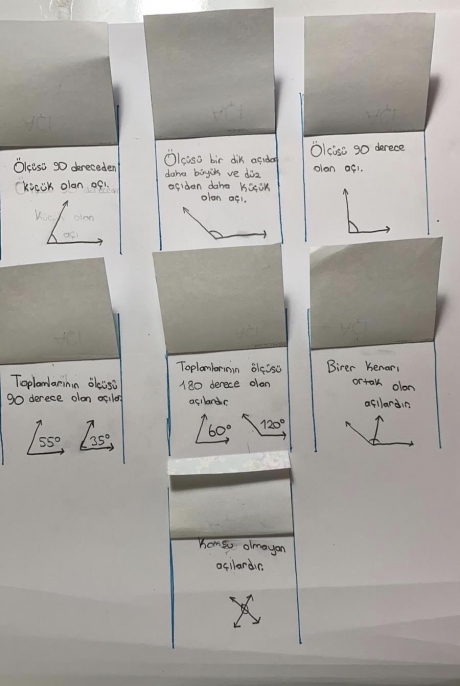 Ölçüsü 90 dereceden
küçük olan açı.
Ölçüsü bir dik açıdan
daha büyük ve düz
açıdan daha küçük
olan açı.
Ölçüsü 90 derece
olan açı.
Toplamlarının ölçüsü
90 derece olan açılar
55°
35°
Toplamlarının ölçüsü
180 derece olan
açılardır.
60°
120°
Birer kenarı
ortak olan
açılardır.
Komşu olmayan
açılardır.